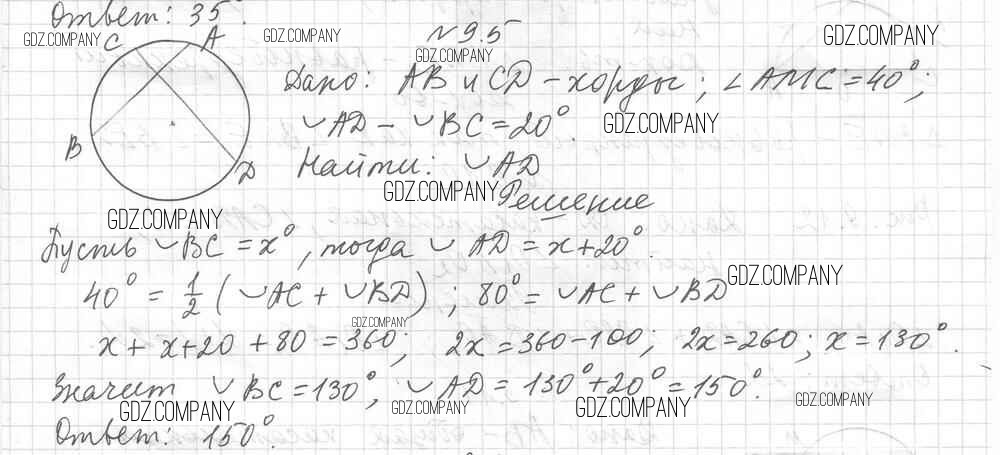 Ответ: 35°.
GDZ.COMPANY C A GDZ.COMPANY N 9.5 GDZ.COMPANY
GDZ.COMPANY
Дано: AB и CD - хорды; ∠AMC = 40°;
◡AD - ◡BC = 20°. GDZ.COMPANY
B D Найти: ◡AD
GDZ.COMPANY Решение
GDZ.COMPANY
Пусть ◡BC = x°, тогда ◡AD = x+20°.
GDZ.COMPANY
40° = 1/2 (◡AC + ◡BD); 80° = ◡AC + ◡BD
GDZ.COMPANY
x + x+20 + 80 = 360; 2x = 360-100; 2x = 260; x = 130°.
Значит ◡BC = 130°; ◡AD = 130°+20° = 150°.
GDZ.COMPANY GDZ.COMPANY GDZ.COMPANY GDZ.COMPANY
Ответ: 150°.